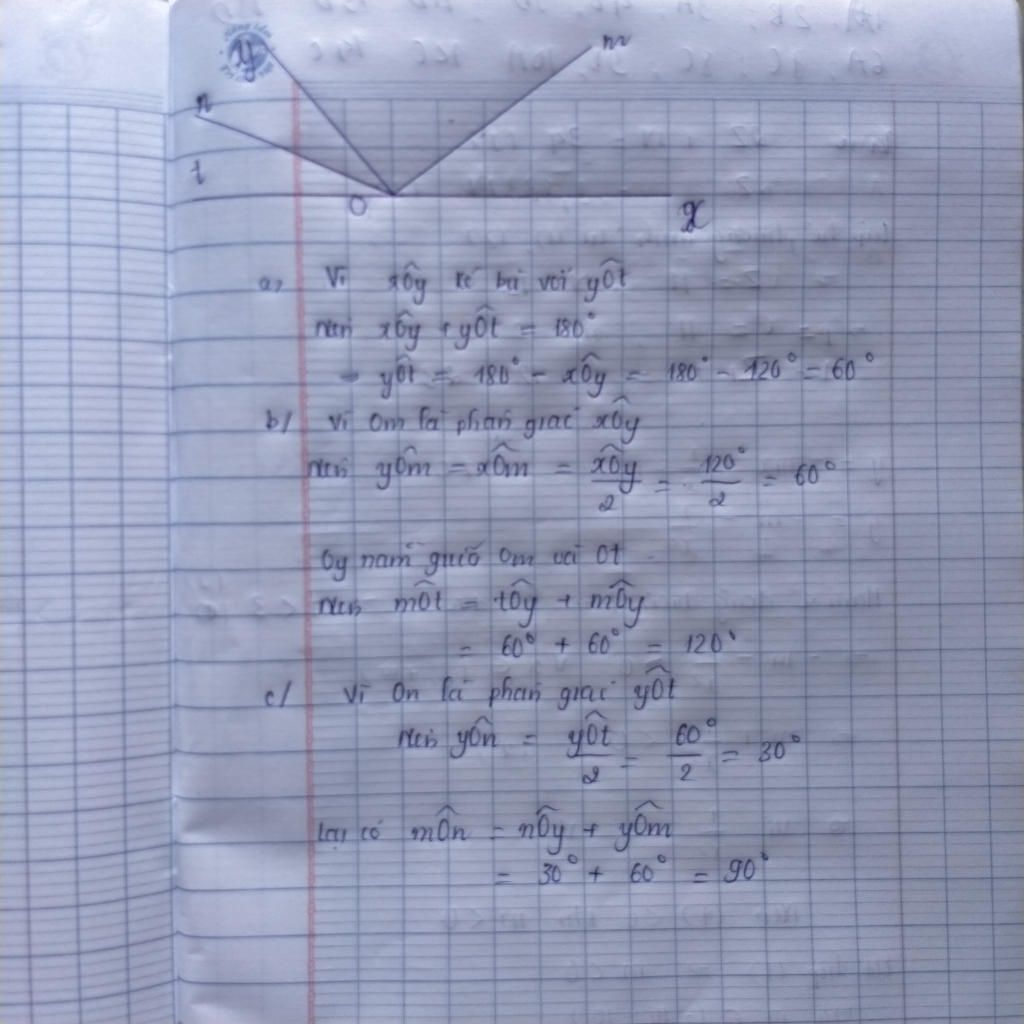 y
m
n
t
O
x
a, Vì xÔy kề bù với yÔt
Nên xÔy + yÔt = 180°
yÔt = 180° - xÔy = 180° - 120° = 60°
b/ Vì Om là phân giác xÔy
Nên yÔm = xÔm = xÔy/2 = 120°/2 = 60°
Oy nằm giữa Om và Ot
Nên mÔt = tÔy + mÔy
= 60° + 60° = 120°
c/ Vì On là phân giác yÔt
Nên yÔn = yÔt/2 = 60°/2 = 30°
Lại có mÔn = nÔy + yÔm
= 30° + 60° = 90°